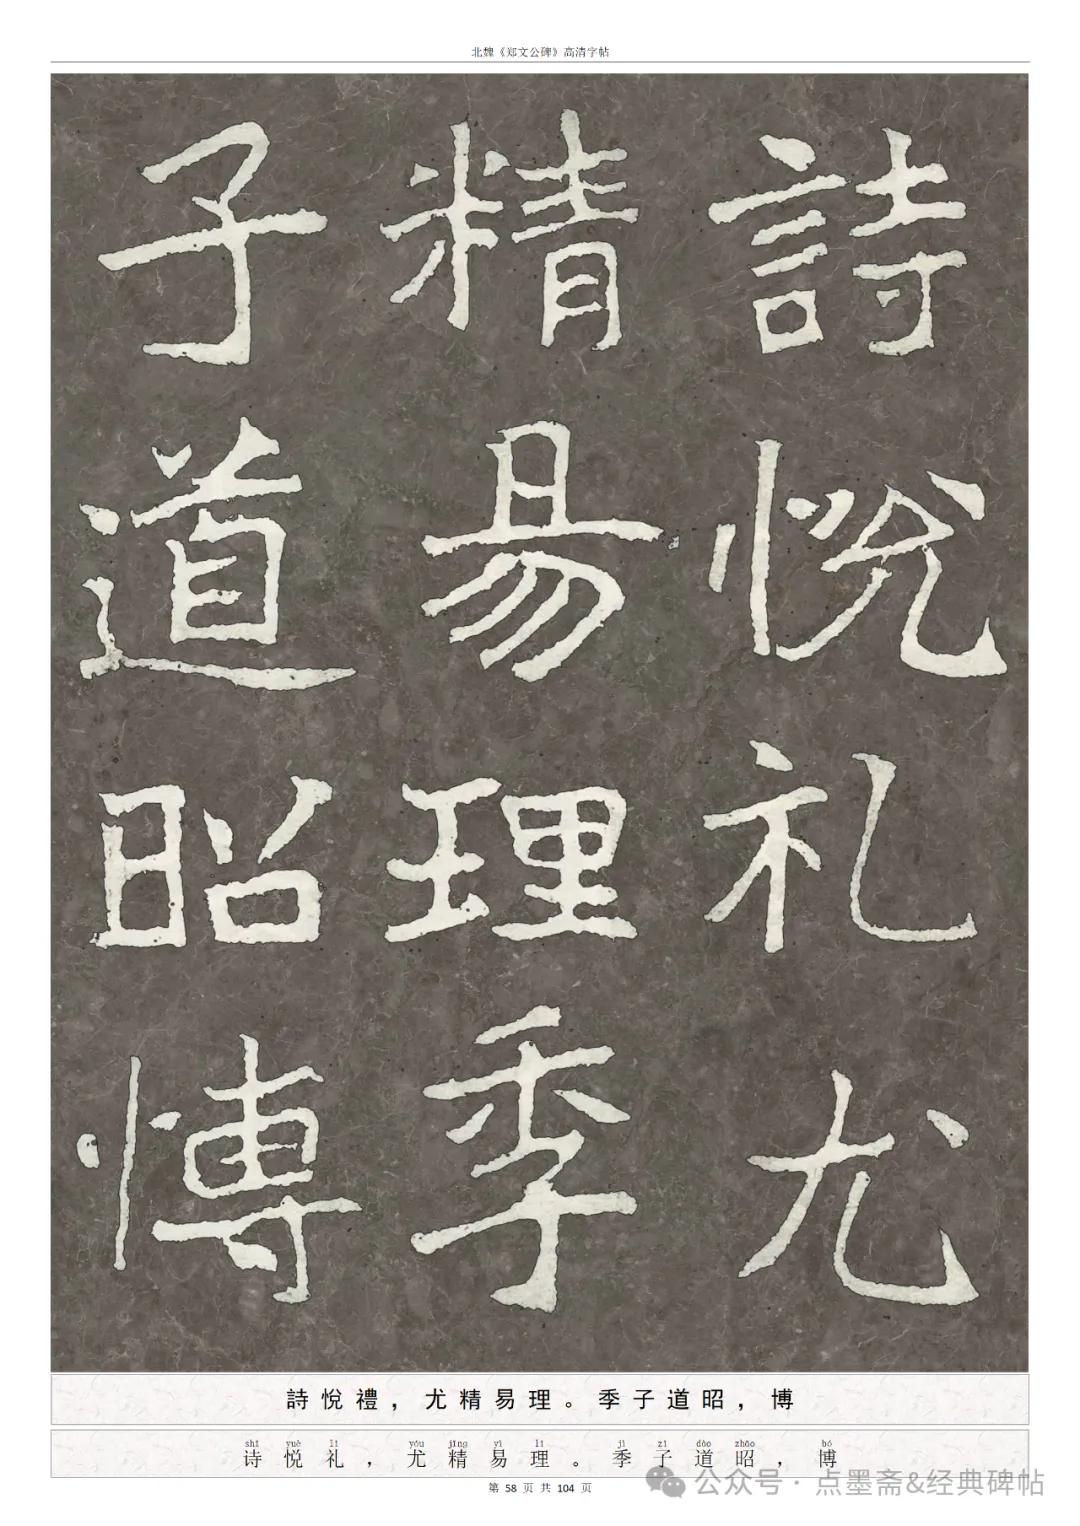 北魏《郑文公碑》高清字帖
詩悅礼尤
精易理季
子道昭博
詩悅禮，尤精易理。季子道昭，博
shī yuè lǐ yóu jīng yì lǐ jì zǐ dào zhāo bó
诗悦礼，尤精易理。季子道昭，博
第 58 页 共 104 页
公众号 · 点墨斋&经典碑帖